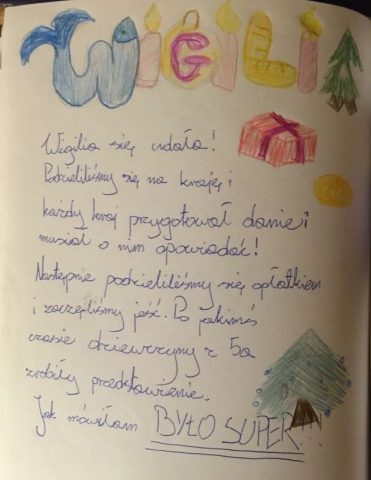 WIGILIA
Wigilia się udała!
Podzieliliśmy się na kraje i
każdy kraj przygotował danie i
musiał o nim opowiadać!
Następnie podzieliliśmy się opłatkiem
i zaczęliśmy jeść. Po jakimś
czasie dziewczyny z 5a
zrobiły przedstawienie.
Jak mówiłam BYŁO SUPER!!!